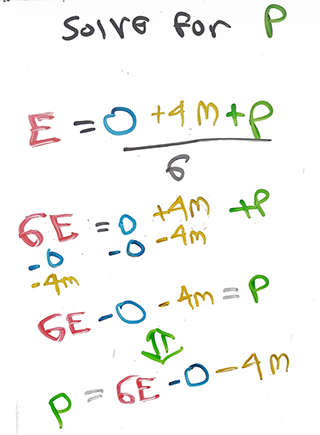 Solve for P
E = O + 4M + P
6
6E = O + 4M + P
-O -O -4M
-4M
6E - O - 4M = P
⇕
P = 6E - O - 4M